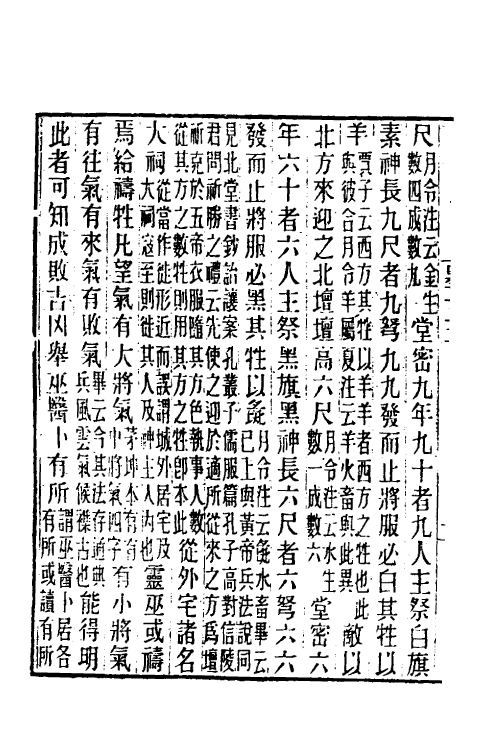 尺月令注云金生數四成數九堂密九年九十者九人主祭白旗
素神長九尺者九弩九九發而止將服必白其牲以
羊賈子云西方其牲以羊羊者西方之牲也此與彼合月令羊屬夏注云羊火畜與此異敵以
北方來迎之北壇壇高六尺月令注云水生數一成數六堂密六
年六十者六人主祭黑旗黑神長六尺者六弩六六
發而止將服必黑其牲以彘月令注云彘水畜畢云已上與黃帝兵法說同
見北堂書鈔詒讓案孔叢子儒服篇孔子高對信陵君問祈勝之禮云先使之迎於適所從來之方爲壇
祈克於五帝衣服隨其方色執事人數從其方之數牲則用其方之牲卽本此從外宅諸名
大祠從當作徙形近而誤謂城外居宅及大祠寇至則徙其人及神主入內也靈巫或禱
焉給禱牲凡望氣有大將氣茅坤本有中將氣四字有小將氣
有往氣有來氣有敗氣畢云今其法存通典兵風雲氣候襍占也能得明
此者可知成敗吉凶舉巫醫卜有所謂巫醫卜居各有所或讀有所